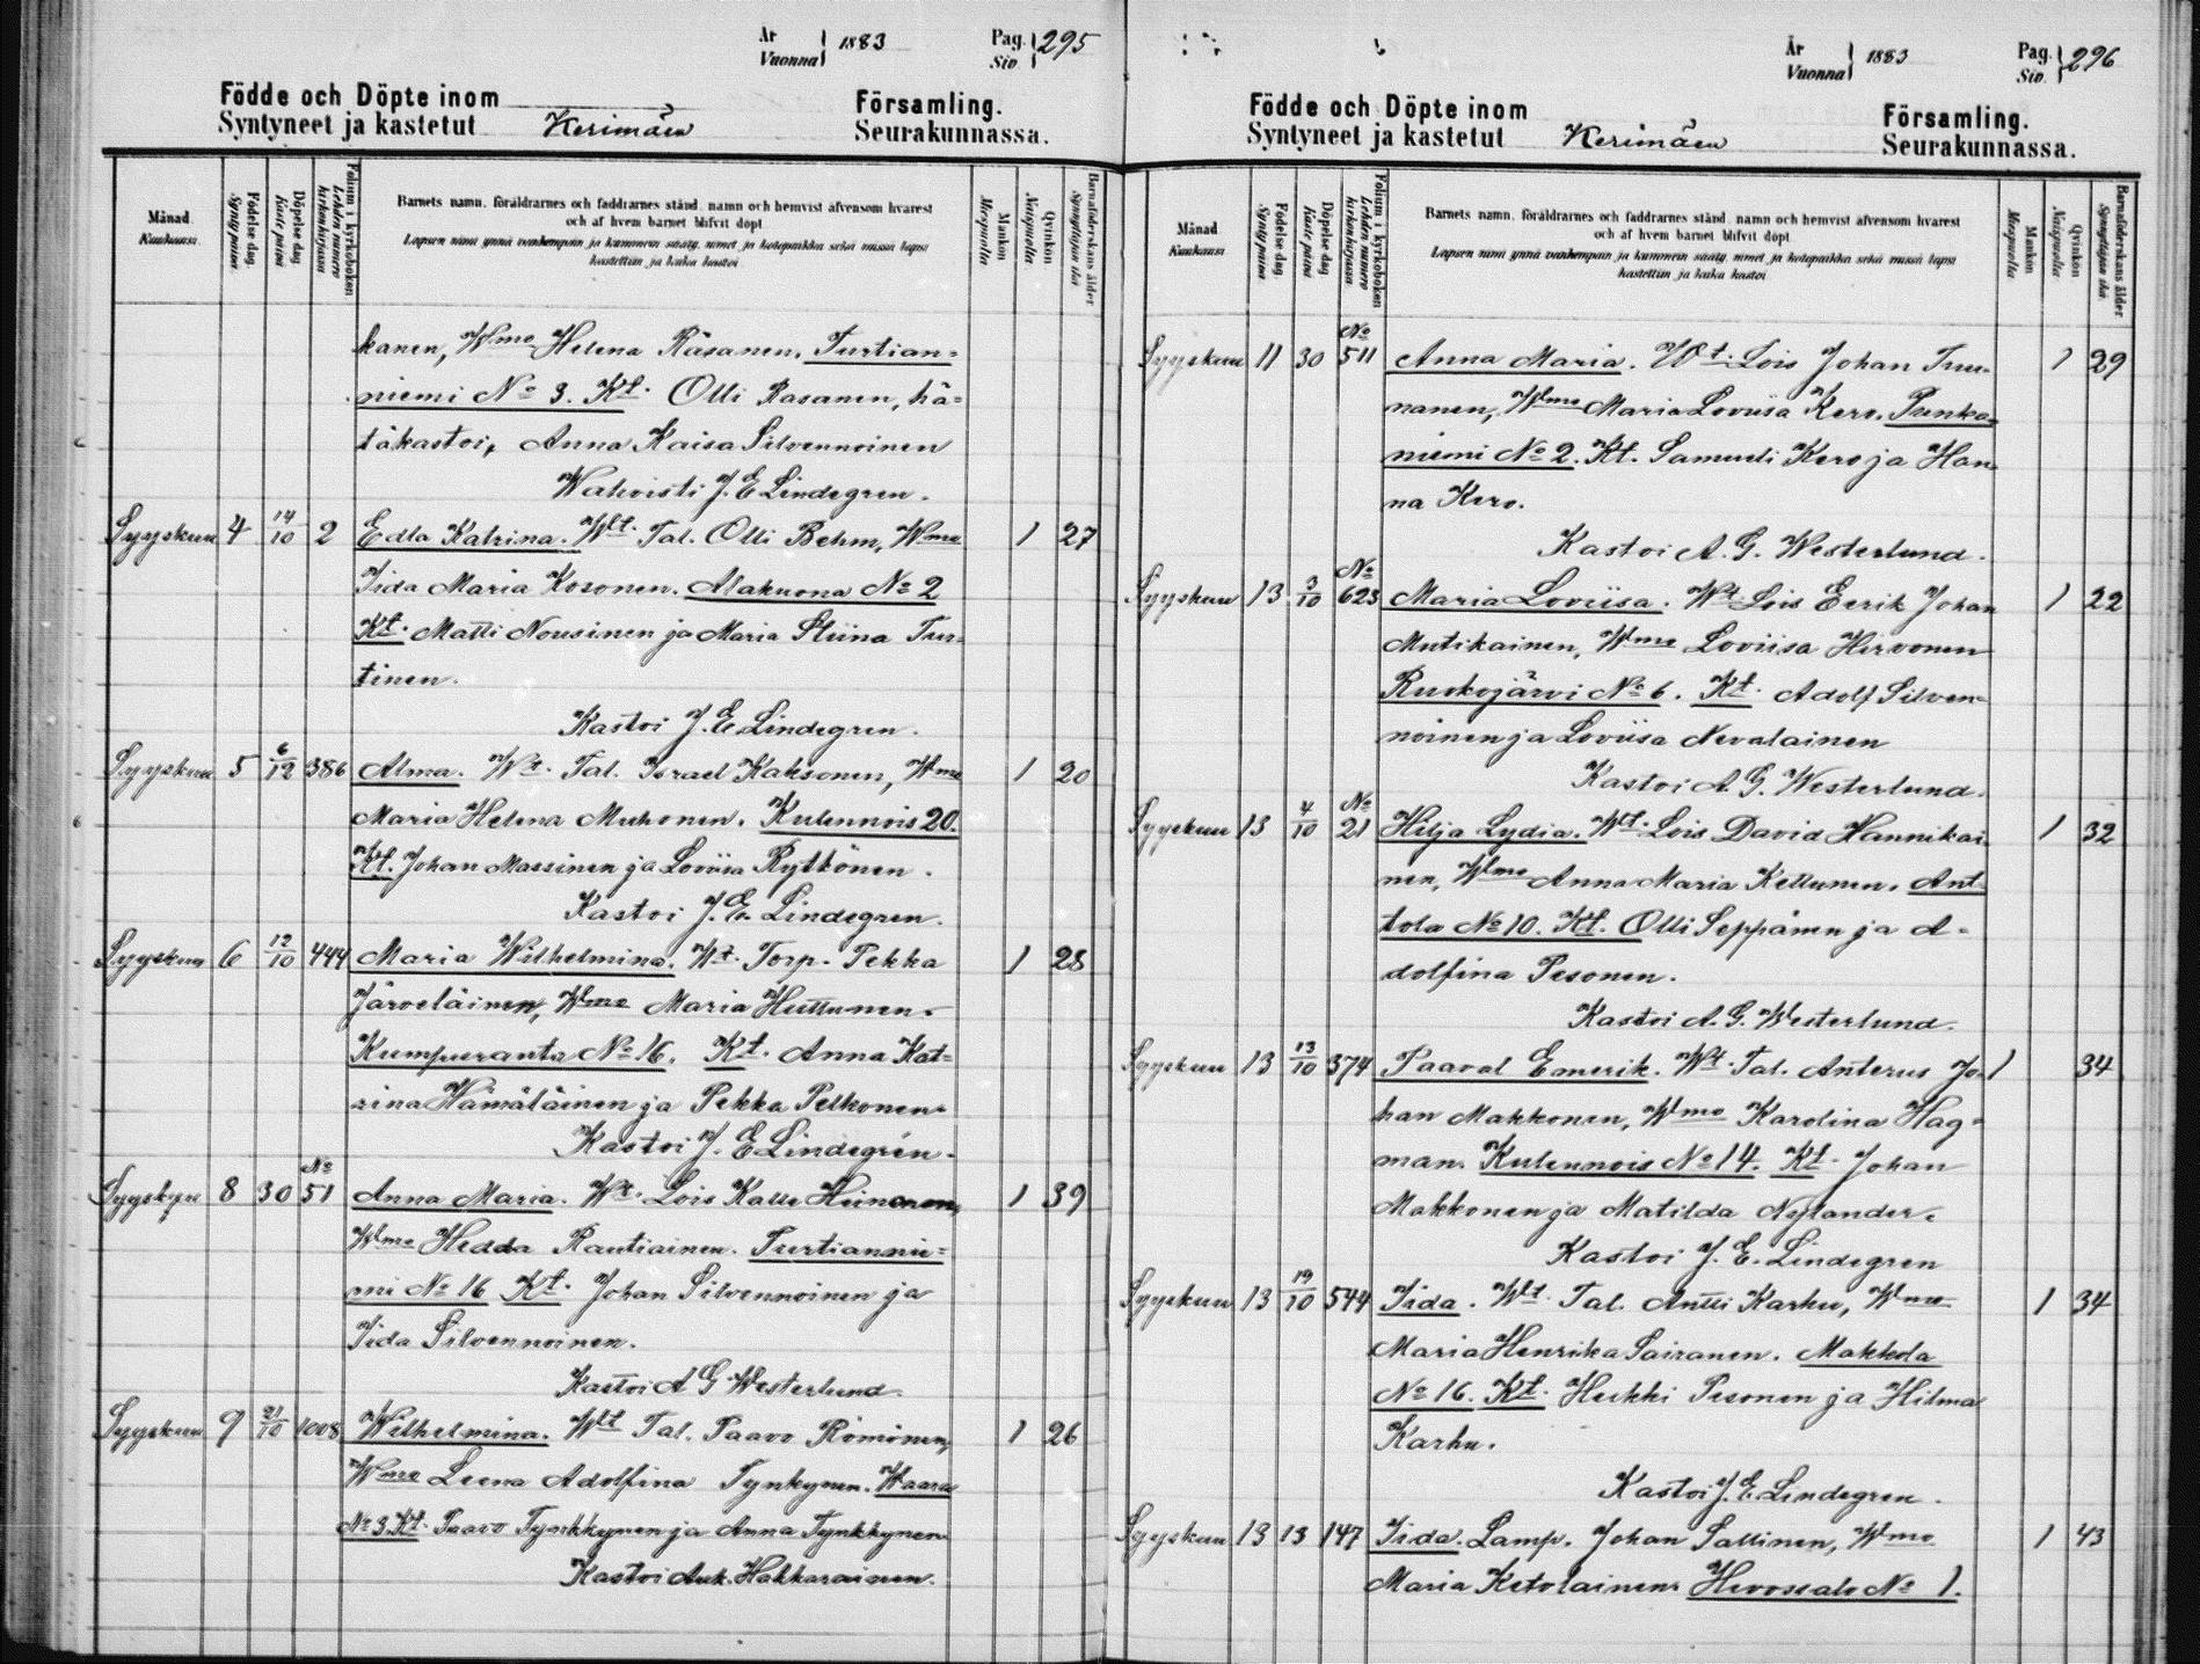 År
Vuonna } 1883
Pag.
Siv. } 295
Födde och Döpte inom
Syntyneet ja kastetut Kerimäen
Församling.
Seurakunnassa.
Månad
Kuukausi
Födelse dag.
Synty päivä
Döpelse dag
Kaste päivä
Folium i kyrkoboken
Lehden numero kirkonkirjassa
Barnets namn, föräldrarnes och faddrarnes stånd, namn och hemvist äfvensom hvarest
och af hvem barnet blifvit döpt
Lapsen nimi ynnä vanhempain ja kummein sääty, nimet ja kotopaikka sekä missä lapsi
kastettiin ja kuka kastoi
Mankön
Miespuolta
Qvinkön
Naispuolta
Barnaföderskans ålder
Synnyttäjän ikä
kanen, Wmo Helena Räsänen. Turtian=
niemi No 3. Kt. Olli Rasanen, hä=
täkastoi, Anna Kaisa Silvennoinen
Wahvisti J. E Lindegren.
Syyskuu 4 14/10 2 Edla Katrina. Wt. Tal. Olli Behm, Wmo 1 27
Iida Maria Kosonen. Alakuona No 2
Kt. Matti Nousinen ja Maria Stiina Tur=
tinen.
Kastoi J. E Lindegren.
Syyskuu 5 6/12 386 Alma. Wt. Tal. Israel Kaksonen, Wmo 1 20
Maria Helena Muhonen. Kulennois 20.
Kt. Johan Massinen ja Loviisa Rytkönen.
Kastoi J. E. Lindegren.
Syyskuu 6 12/10 444 Maria Wilhelmina. Wt. Torp. Pekka 1 28
Järveläinen, Wmo Maria Huttunen.
Kumpuranta No 16. Kt. Anna Kat=
rina Hämäläinen ja Pekka Pelkonen.
Kastoi J. E Lindegren.
Syyskuu 8 30 No 51 Anna Maria. Wt. Lois Kalle Heinonen, 1 39
Wmo Hedda Rautiainen. Turtiannie=
mi No 16 Kt. Johan Silvennoinen ja
Iida Silvennoinen.
Kastoi A G Westerlund.
Syyskuu 9 21/10 1008 Wilhelmina. Wt Tal. Paavo Römönen, 1 26
Wmo Leena Adolfina Tynkynen. Waara
No 3 Kt. Paavo Tynkkynen ja Anna Tynkkynen
Kastoi Auk. Hakkarainen.
År
Vuonna } 1883
Pag.
Siv. } 296
Födde och Döpte inom
Syntyneet ja kastetut Kerimäen
Församling.
Seurakunnassa.
Månad
Kuukausi
Födelse dag.
Synty päivä
Döpelse dag
Kaste päivä
Folium i kyrkoboken
Lehden numero kirkonkirjassa
Barnets namn, föräldrarnes och faddrarnes stånd, namn och hemvist äfvensom hvarest
och af hvem barnet blifvit döpt
Lapsen nimi ynnä vanhempain ja kummein sääty, nimet ja kotopaikka sekä missä lapsi
kastettiin ja kuka kastoi
Mankön
Miespuolta
Qvinkön
Naispuolta
Barnaföderskans ålder
Synnyttäjän ikä
Syyskuu 11 30 No 511 Anna Maria. Wt. Lois Johan Tuu- 1 29
nanen, Wmo Maria Loviisa Kero. Punka=
niemi No 2. Kt. Samueli Kero ja Han
na Kero.
Kastoi A. G. Westerlund.
Syyskuu 13 3/10 No 623 Maria Loviisa. Wt. Lois Eerik Johan 1 22
Mutikainen, Wmo Loviisa Hirvonen
Ruokojärvi No 6. Kt. Adolf Silven=
noinen ja Loviisa Nevalainen
Kastoi A. G. Westerlund.
Syyskuu 13 4/10 No 21 Hilja Lydia. Wt. Lois David Hannikai 1 32
nen, Wmo Anna Maria Kettunen. Ant
tola No 10. Kt. Olli Seppänen ja A=
dolfina Pesonen.
Kastoi A. G. Westerlund.
Syyskuu 13 13/10 374 Paaval Emerik. Wt. Tal. Anterus Jo- 1 34
han Makkonen, Wmo Karolina Hag=
man. Kulennois No 14. Kt. Johan
Makkonen ja Matilda Nylander.
Kastoi J. E. Lindegren
Syyskuu 13 19/10 544 Iida. Wt. Tal. Antti Karhu, Wmo 1 34
Maria Henrika Sairanen. Makkola
No 16. Kt. Heikki Pesonen ja Hilma
Karhu.
Kastoi J. E. Lindegren.
Syyskuu 13 13 147 Iida. Lamp. Johan Sallinen, Wmo 1 43
Maria Ketolainen. Hevossalo No 1.